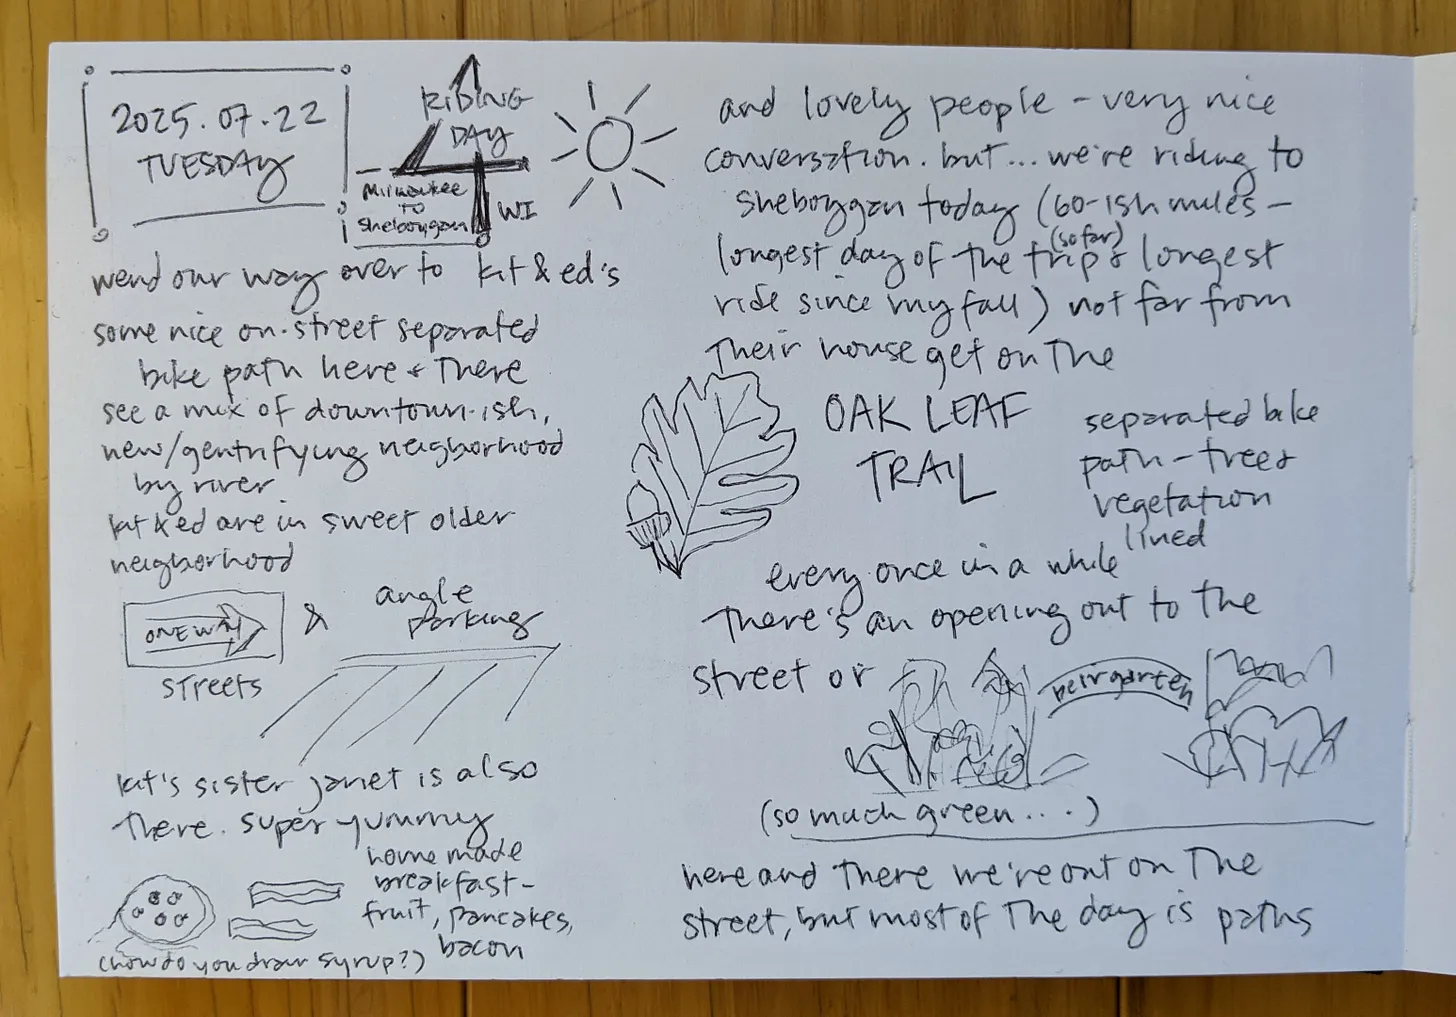 2025.07.22
TUESDAY
RIDING
DAY
Milwaukee
TO
Sheboygan
WI
wend our way over to kit & ed's
some nice on-street separated
bike path here & there
see a mix of downtown-ish,
new/gentrifying neigborhood
by river
kit & ed are in sweet older
neigborhood
ONE WAY
STREETS
&
angle
parking
kit's sister janet is also
there. super yummy
home made
breakfast-
fruit, pancakes,
bacon
(how do you draw syrup?)
and lovely people - very nice
conversation. but... we're riding to
sheboygan today (60-ish miles -
longest day of the trip (so far) & longest
ride since my fall) not far from
their house get on the
OAK LEAF
TRAIL
separated bike
path - trees
vegetation
lined
every once in a while
there's an opening out to the
street or
beirgarten
(so much green....)
here and there we're out on the
street, but most of the day is paths